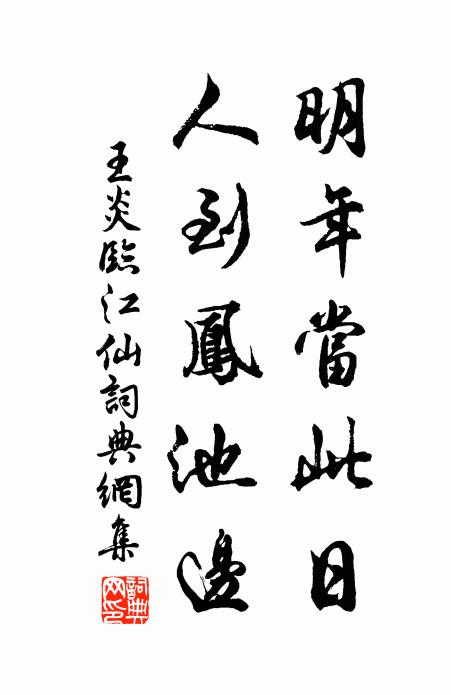 明年當此日
人到鳳池邊
王炎臨江仙詞典網集
詞典網印